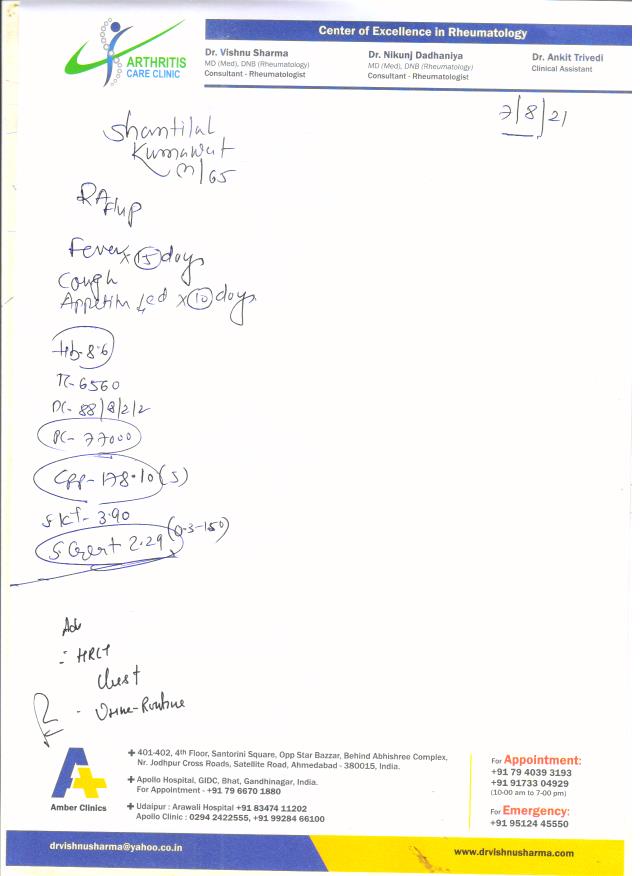 ARTHRITIS
CARE CLINIC
Center of Excellence in Rheumatology
Dr. Vishnu Sharma
MD (Med), DNB (Rheumatology)
Consultant - Rheumatologist
Dr. Nikunj Dadhaniya
MD (Med), DNB (Rheumatology)
Consultant - Rheumatologist
Dr. Ankit Trivedi
Clinical Assistant
7/8/21
Shantilal
Kumawat
M/65
RA
Flup
Fever x 15 days
Cough
x 10 days
Hb-8.6
TC-6560
DC- 88/8/2/2
PC- 77000
178.10 (5)
3.90
S. Creat 2.29
Adv
- HRCT
Chest
- Urine-Routine
Amber Clinics
401-402, 4th Floor, Santorini Square, Opp Star Bazzar, Behind Abhishree Complex,
Nr. Jodhpur Cross Roads, Satellite Road, Ahmedabad - 380015, India.
Apollo Hospital, GIDC, Bhat, Gandhinagar, India.
For Appointment - +91 79 6670 1880
Udaipur : Arawali Hospital +91 83474 11202
Apollo Clinic : 0294 2422555, +91 99284 66100
For Appointment:
+91 79 4039 3193
+91 91733 04929
(10-00 am to 7-00 pm)
For Emergency:
+91 95124 45550
drvishnusharma@yahoo.co.in
www.drvishnusharma.com